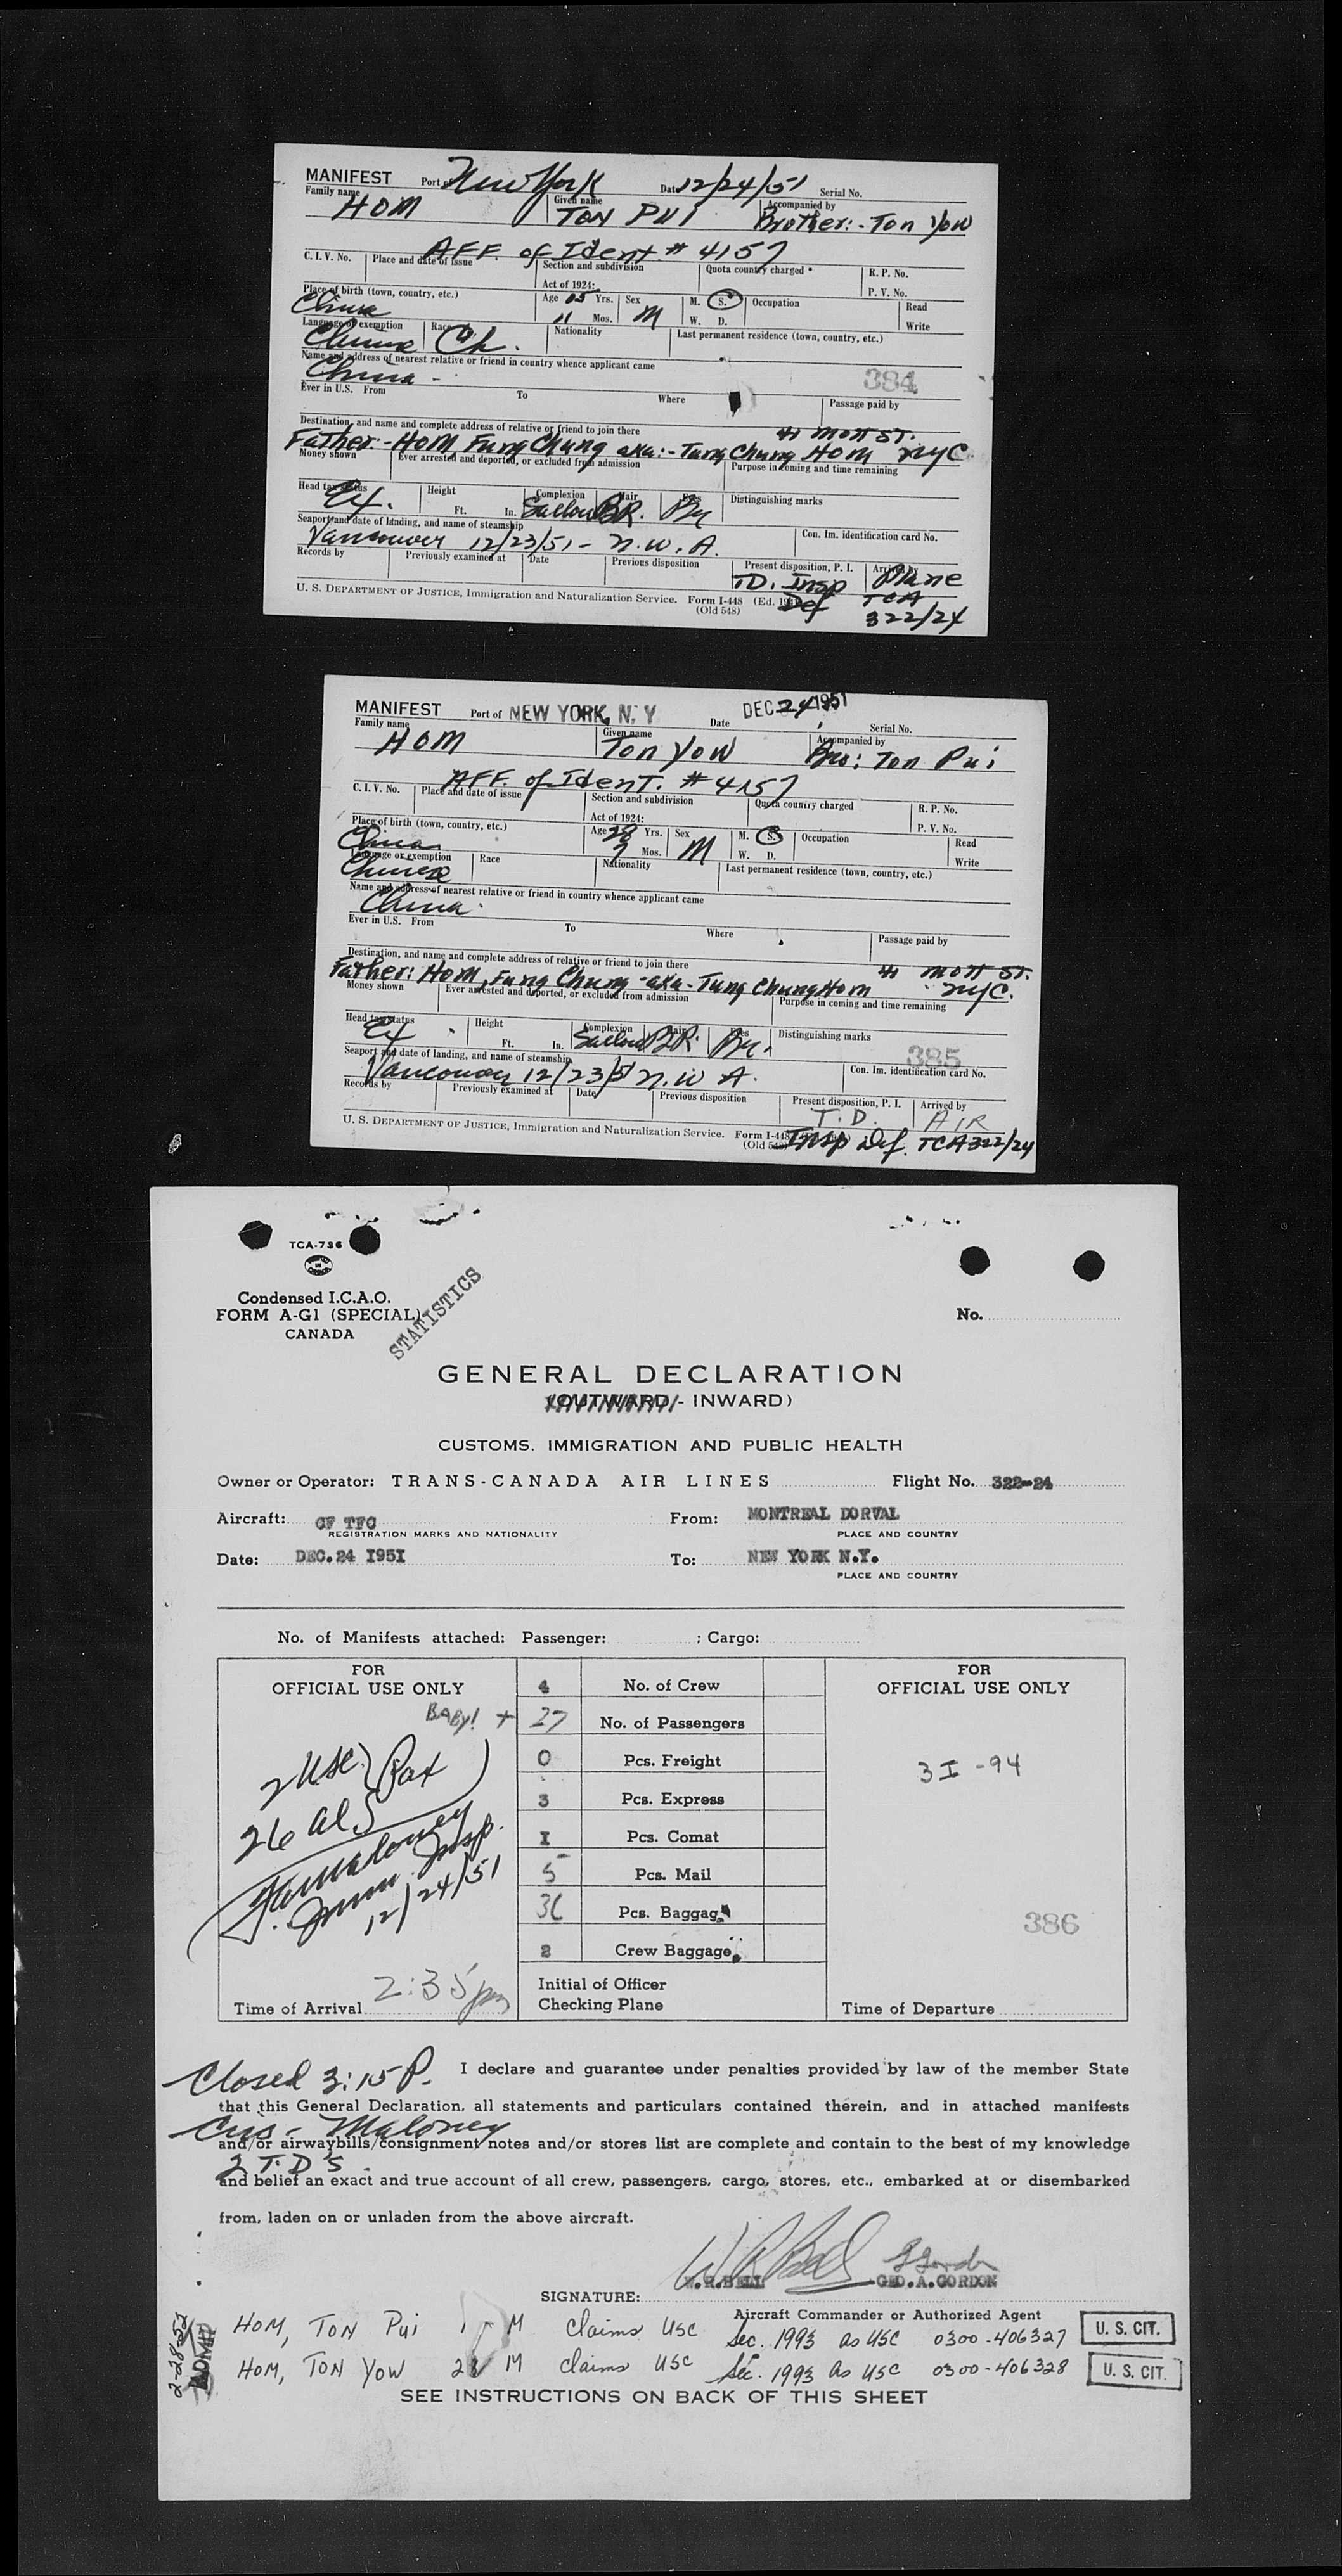 MANIFEST Port of New York Date 12/24/51 Serial No.
Family name Given name Accompanied by
HOM TON PUI Brother:- Ton Yow
AFF. of Ident. # 4157
C. I. V. No. Place and date of issue Section and subdivision Quota country charged R. P. No.
Act of 1924: P. V. No.
Place of birth (town, country, etc.) Age Yrs. Sex M. S. Occupation Read
China 11 Mos. M W. D. Write
Language or exemption Race Nationality Last permanent residence (town, country, etc.)
Chinese Ch.
Name and address of nearest relative or friend in country whence applicant came
China - 384
Ever in U.S. From To Where Passage paid by
Destination, and name and complete address of relative or friend to join there 41 Mott ST.
Father:- HOM, Fung Chung aka:- Tung Chung HOM NYC
Money shown Ever arrested and deported, or excluded from admission Purpose in coming and time remaining
Head tax status Height Complexion Hair Eyes Distinguishing marks
Ex. Ft. In. Sallow BR. Br
Seaport and date of landing, and name of steamship Con. Im. identification card No.
Vancouver 12/23/51 - N.W.A.
Records by Previously examined at Date Previous disposition Present disposition, P. I. Arrived by
TD. Insp Plane
U. S. DEPARTMENT OF JUSTICE, Immigration and Naturalization Service. Form I-448 (Ed. Def TCA
(Old 548) 322/24
MANIFEST Port of NEW YORK, N. Y Date DEC 24 1951 Serial No.
Family name Given name Accompanied by
HOM Ton Yow Bro: Ton Pui
AFF. of Ident. # 4157
C. I. V. No. Place and date of issue Section and subdivision Quota country charged R. P. No.
Act of 1924: P. V. No.
Place of birth (town, country, etc.) Age 28 Yrs. Sex M. S. Occupation Read
China 7 Mos. M W. D. Write
Language or exemption Race Nationality Last permanent residence (town, country, etc.)
Chinese
Name and address of nearest relative or friend in country whence applicant came
China
Ever in U.S. From To Where Passage paid by
Destination, and name and complete address of relative or friend to join there 41 Mott ST.
Father: HOM, Fung Chung -aka- Tung Chung Hom NYC.
Money shown Ever arrested and deported, or excluded from admission Purpose in coming and time remaining
Head tax status Height Complexion Hair Eyes Distinguishing marks
Ex Ft. In. Sallow BR. Br. 385
Seaport and date of landing, and name of steamship Con. Im. identification card No.
Vancouver 12/23/51 N.W A.
Records by Previously examined at Date Previous disposition Present disposition, P. I. Arrived by
T.D. AIR
U. S. DEPARTMENT OF JUSTICE, Immigration and Naturalization Service. Form I-448 Insp Def. TCA 322/24
(Old 548)
TCA-736
Condensed I.C.A.O.
FORM A-G1 (SPECIAL)
CANADA
STATISTICS
No.
GENERAL DECLARATION
(OUTWARD - INWARD)
CUSTOMS, IMMIGRATION AND PUBLIC HEALTH
Owner or Operator: TRANS-CANADA AIR LINES Flight No. 322-24
Aircraft: CF TFC From: MONTREAL DORVAL
REGISTRATION MARKS AND NATIONALITY PLACE AND COUNTRY
Date: DEC.24 I95I To: NEW YORK N.Y.
PLACE AND COUNTRY
No. of Manifests attached: Passenger: ; Cargo:
FOR OFFICIAL USE ONLY
4 No. of Crew
BABY! + 27 No. of Passengers
0 Pcs. Freight
3 Pcs. Express
I Pcs. Comat
5 Pcs. Mail
36 Pcs. Baggage
2 Crew Baggage
Initial of Officer
Checking Plane
2 USC } Pax
26 Als
Maloney
Imm. Insp.
12/24/51
Time of Arrival 2:35 pm
FOR OFFICIAL USE ONLY
3 I - 94
386
Time of Departure
Closed 3:15 P. I declare and guarantee under penalties provided by law of the member State
that this General Declaration, all statements and particulars contained therein, and in attached manifests
Cus - Maloney
and/or airwaybills/consignment notes and/or stores list are complete and contain to the best of my knowledge
2 T.D's.
and belief an exact and true account of all crew, passengers, cargo, stores, etc., embarked at or disembarked
from, laden on or unladen from the above aircraft.
SIGNATURE: W.R.BELL GEO.A.GORDON
Aircraft Commander or Authorized Agent
HOM, TON Pui M Claims USC Sec. 1993 as USC 0300-406327 U. S. CIT.
HOM, TON YOW 28 M Claims USC Sec. 1993 as USC 0300-406328 U. S. CIT.
2-28-52
ADMIT
SEE INSTRUCTIONS ON BACK OF THIS SHEET